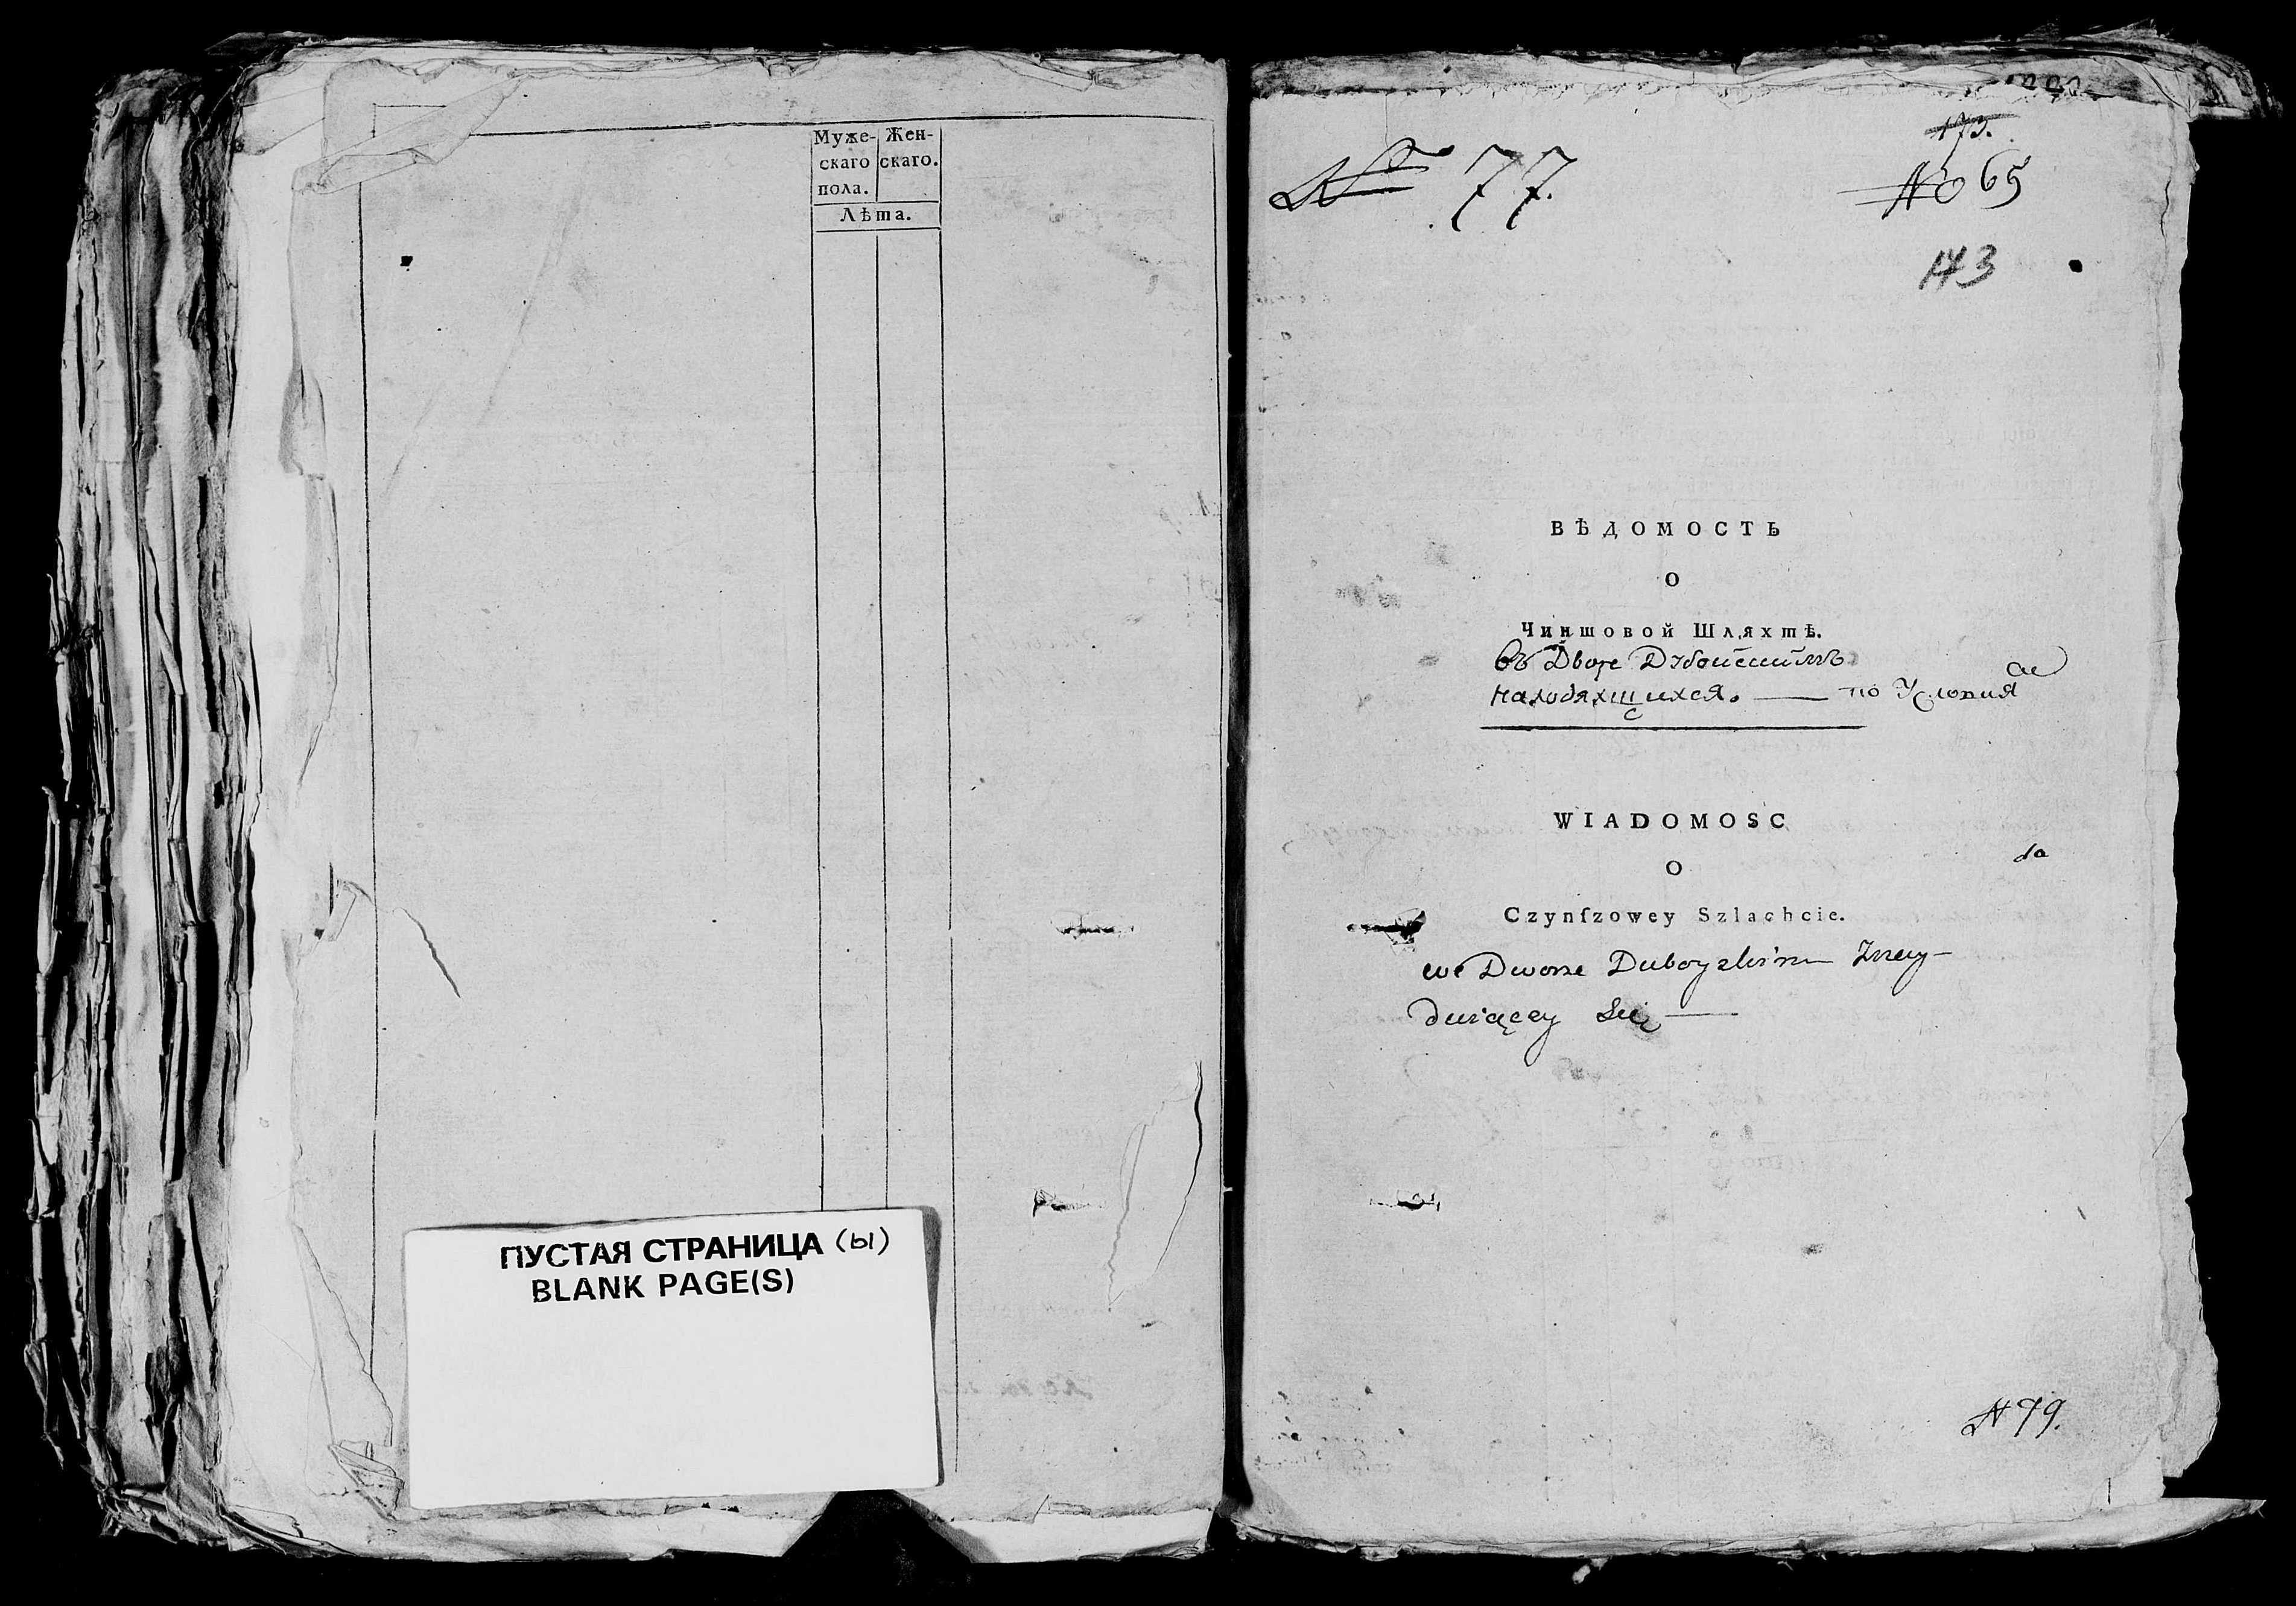 Муже- Жен-
скаго скаго.
пола.
Лѣта.
ПУСТАЯ СТРАНИЦА (ы)
BLANK PAGE(S)
173.
№ 77.
№ 65
143
ВѢДОМОСТЬ
О
Чиншовой Шляхтѣ.
въ Дворе
находяхщихся. — по Условия
WIADOMOSC
O
da
Czynſzowey Szlachcie.
we Dworze Duboyskim Znay-
duiącey Się —
№ 79.